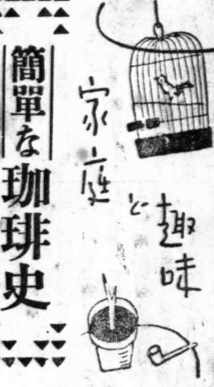 家庭
と趣味
簡單な珈琲史